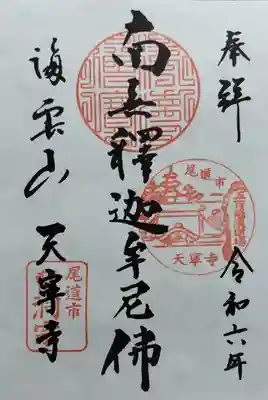 奉拝
尾道市
天寧寺
令和六年
南無釋迦牟尼佛
海雲山 天寧寺
尾道市